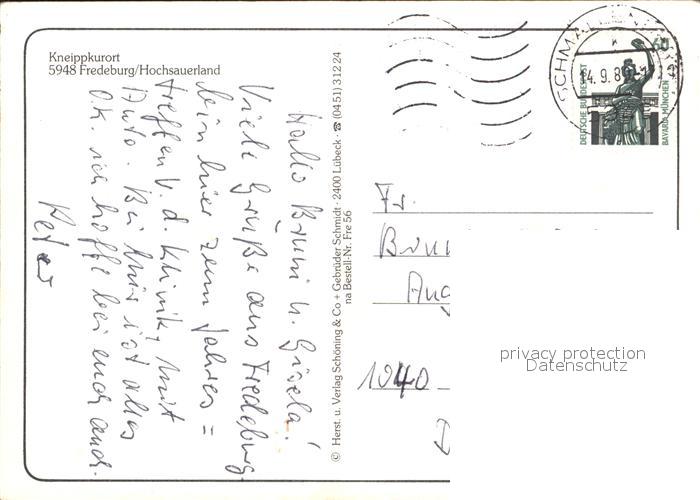 Kneippkurort
5948 Fredeburg/Hochsauerland
Hallo Bruni u. Gisela!
Viele Grüße aus Fredeburg.
bin hier zum Jahres=
treffen v. d. Klinik, mit
Auto. Bei mir ist alles
O.K. ich hoffe bei euch auch.
Peter
© Herst. u. Verlag Schöning & Co + Gebrüder Schmidt · 2400 Lübeck · ☎ (0451) 31224
na Bestell-Nr. Fre 56
SCHMALLENBERG
14.9.8
60
DEUTSCHE BUNDESPOST
BAVARIA MÜNCHEN
Fr.
Brun
Aug
1040
privacy protection
Datenschutz